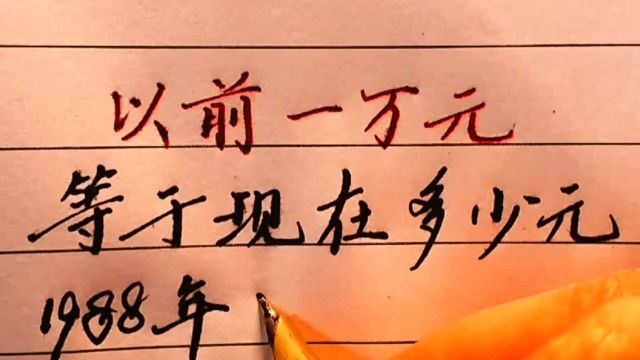 以前一万元
等于现在多少元
1988年